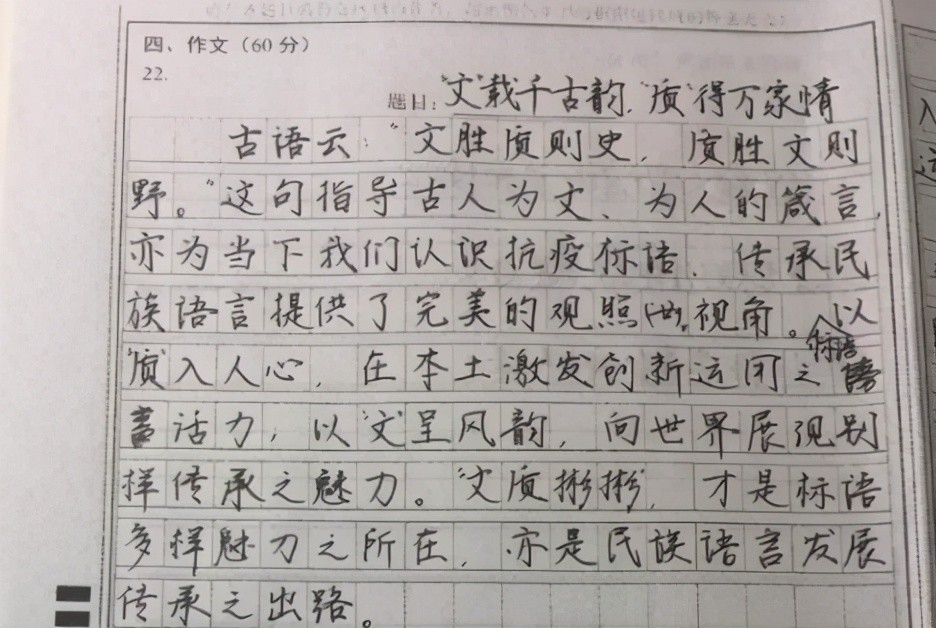 四、作文（60分）
22.
题目："文"载千古韵，"质"得万家情
古语云："文胜质则史，质胜文则
野。"这句指导古人为文、为人的箴言，
亦为当下我们认识抗疫标语、传承民
族语言提供了完美的观照视角。以
"质"入人心，在本土激发创新运用之
标语
活力，以"文"呈风韵，向世界展现别
样传承之魅力。"文质彬彬"，才是标语
多样魅力之所在，亦是民族语言发展
传承之出路。